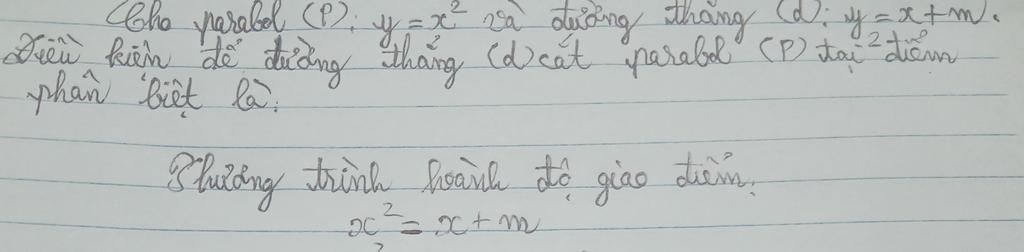 Cho parabol (P): y = x² và đường thẳng (d): y = x + m.
Điều kiện để đường thẳng (d) cắt parabol (P) tại 2 điểm
phân biệt là:
Phương trình hoành độ giao điểm:
x² = x + m